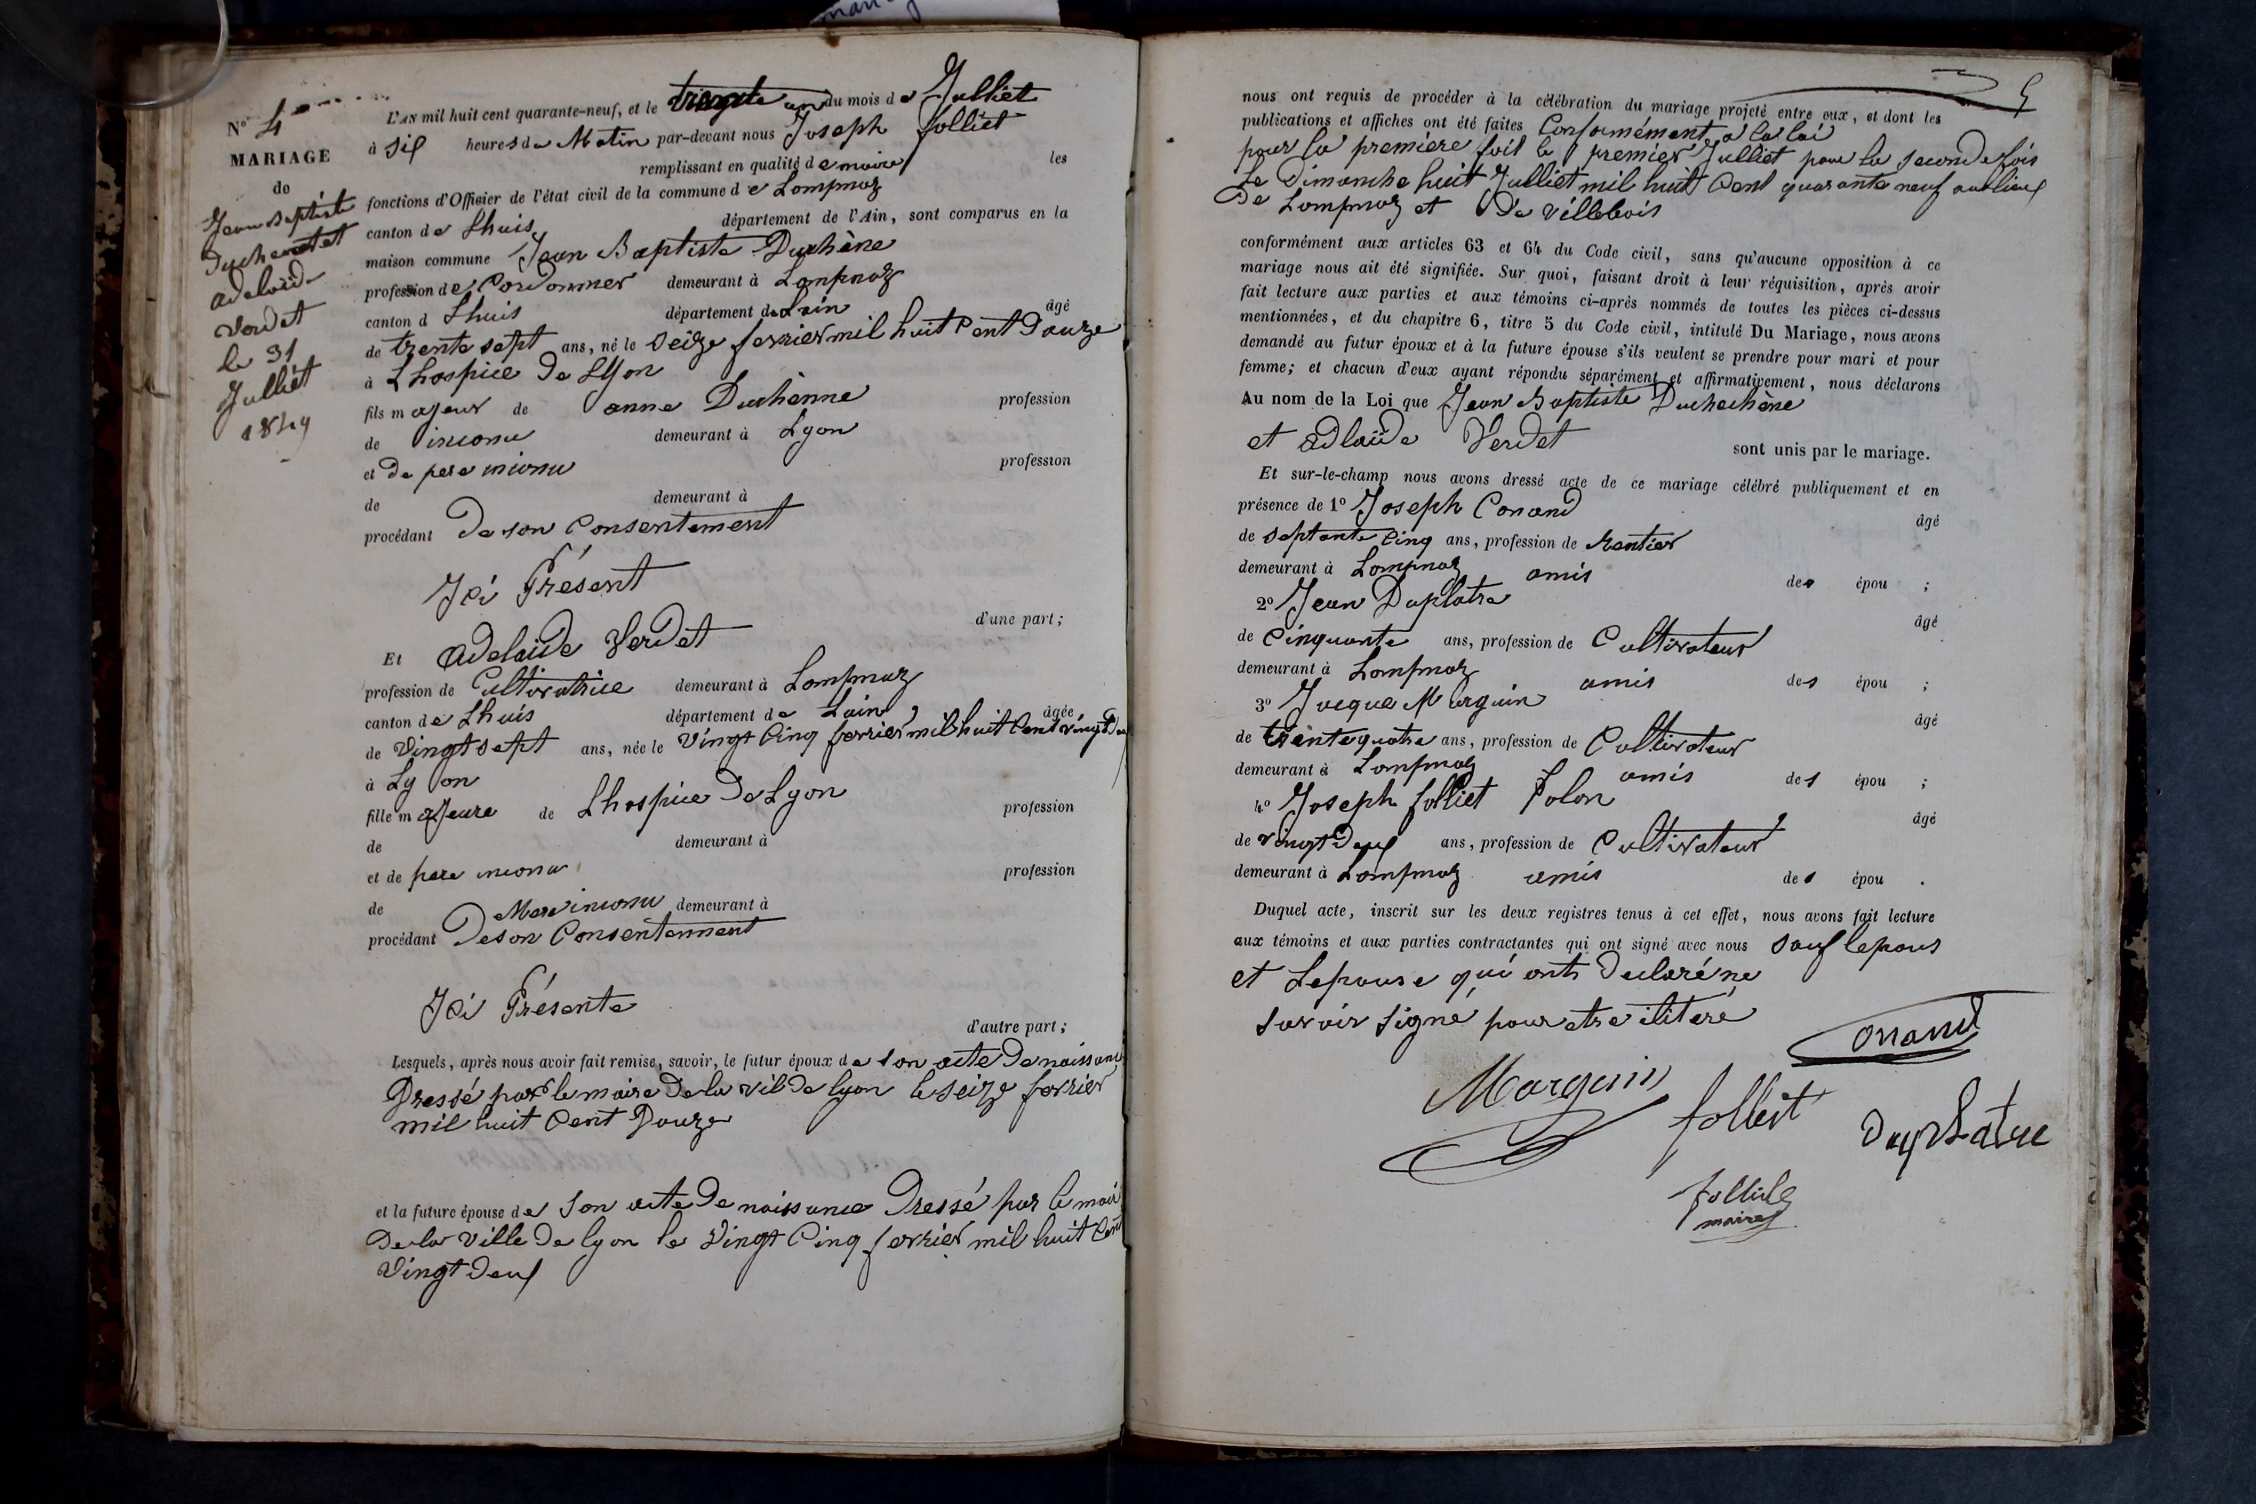 N° 4
MARIAGE
de
Jean Baptiste
Duchenetet
adelaide
Verdet
le 31
Julliet
1849
L'AN mil huit cent quarante-neuf, et le trente un du mois de Julliet
à six heures du Matin par-devant nous Joseph folliet
remplissant en qualité de maire les
fonctions d'Officier de l'état civil de la commune de Lompnaz
canton de Lhuis département de l'Ain, sont comparus en la
maison commune Jean Baptiste Duchêne
profession de Cordonnier demeurant à Lompnaz
canton d Lhuis département de Lain âgé
de trente sept ans, né le seize ferrier mil huit Cent Douze
à Lhospice de Lyon
fils majeur de anne Duchênne profession
de inconu demeurant à Lyon
et De pere inconu profession
de demeurant à
procédant De son Consentement
Ici Présent
d'une part;
Et adelaide Verdet
profession de Cultivatrice demeurant à Lompnaz
canton de Lhuis département de Lain âgée
de Vingt sept ans, née le Vingt Cinq ferrier mil huit Cent vingt Deu
à Lyon
fille majeure de Lhospice De Lyon profession
de demeurant à
et de pere inconu profession
de Mere inconu demeurant à
procédant De son Consentenment
Ici Présente
d'autre part;
Lesquels, après nous avoir fait remise, savoir, le futur époux de son acte De naissance
Dressé par le maire De la vil De lyon le seize ferrier
mil huit Cent Douze
et la future épouse de son acte De naissance Dressé par le mair
De la Ville De lyon le Vingt Cinq ferrier mil huit Cent
Vingt Deux
5
nous ont requis de procéder à la célébration du mariage projeté entre eux, et dont les
publications et affiches ont été faites Conformément a la loi
pour la première fois le premier Julliet pour la seconde fois
Le Dimanche huit Julliet mil huit Cent quarante neuf aux lieux
De Lompnaz et De Villebois
conformément aux articles 63 et 64 du Code civil, sans qu'aucune opposition à ce
mariage nous ait été signifiée. Sur quoi, faisant droit à leur réquisition, après avoir
fait lecture aux parties et aux témoins ci-après nommés de toutes les pièces ci-dessus
mentionnées, et du chapitre 6, titre 5 du Code civil, intitulé Du Mariage, nous avons
demandé au futur époux et à la future épouse s'ils veulent se prendre pour mari et pour
femme; et chacun d'eux ayant répondu séparément et affirmativement, nous déclarons
Au nom de la Loi que Jean Baptiste Duchechêne
et adlaïde Verdet sont unis par le mariage.
Et sur-le-champ nous avons dressé acte de ce mariage célébré publiquement et en
présence de 1° Joseph Conand âgé
de septante Cinq ans, profession de Rentier
demeurant à Lompnaz amis des épou ;
2° Jean Duplatre âgé
de Cinquante ans, profession de Cultivateur
demeurant à Lompnaz amis des épou ;
3° Jacque Marguin âgé
de trente quatre ans, profession de Cultivateur
demeurant à Lompnaz amis des épou ;
4° Joseph folliet Polon âgé
de vingt Deux ans, profession de Cultivateur
demeurant à Lompnaz amis des épou .
Duquel acte, inscrit sur les deux registres tenus à cet effet, nous avons fait lecture
aux témoins et aux parties contractantes qui ont signé avec nous sauf lepous
et Lepouse qui onts Declaré ne
savoir signé pour etre ilitéré
Conand
Marguin
folliet
Duplatre
folliet
maire